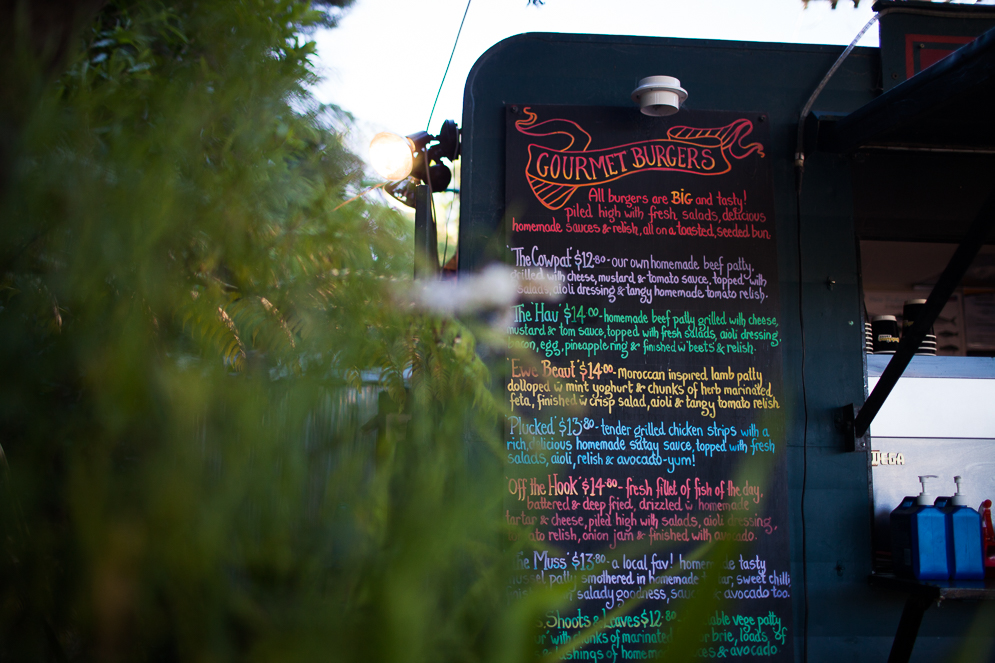 GOURMET BURGERS
All burgers are BIG and tasty!
piled high with fresh salads, delicious
homemade sauces & relish, all on a toasted, seeded bun.
'The Cowpat' $12.80 - our own homemade beef patty,
grilled with cheese, mustard & tomato sauce, topped with
salads, aioli dressing & tangy homemade tomato relish.
'The Hau' $14.00 - homemade beef patty grilled with cheese,
mustard & tom sauce, topped with fresh salads, aioli dressing,
bacon, egg, pineapple ring & finished w beets & relish.
'Ewe Beaut' $14.00 - Moroccan inspired lamb patty
dolloped w mint yoghurt & chunks of herb marinated
feta, finished w crisp salad, aioli & tangy tomato relish
'Plucked' $13.80 - tender grilled chicken strips with a
rich, delicious homemade satay sauce, topped with fresh
salads, aioli, relish & avocado - yum!
'Off the Hook' $14.00 - fresh fillet of fish of the day,
battered & deep fried, drizzled w homemade
tartar & cheese, piled high with salads, aioli dressing,
tomato relish, onion jam & finished with avocado.
Muss' $13.80 - a local fav! homemade tasty
patty smothered in homemade sweet chilli
salady goodness, avocado too.
Shoots & Leaves $12.80 vege patty
with chunks of marinated brie, loads of
homemade & avocado